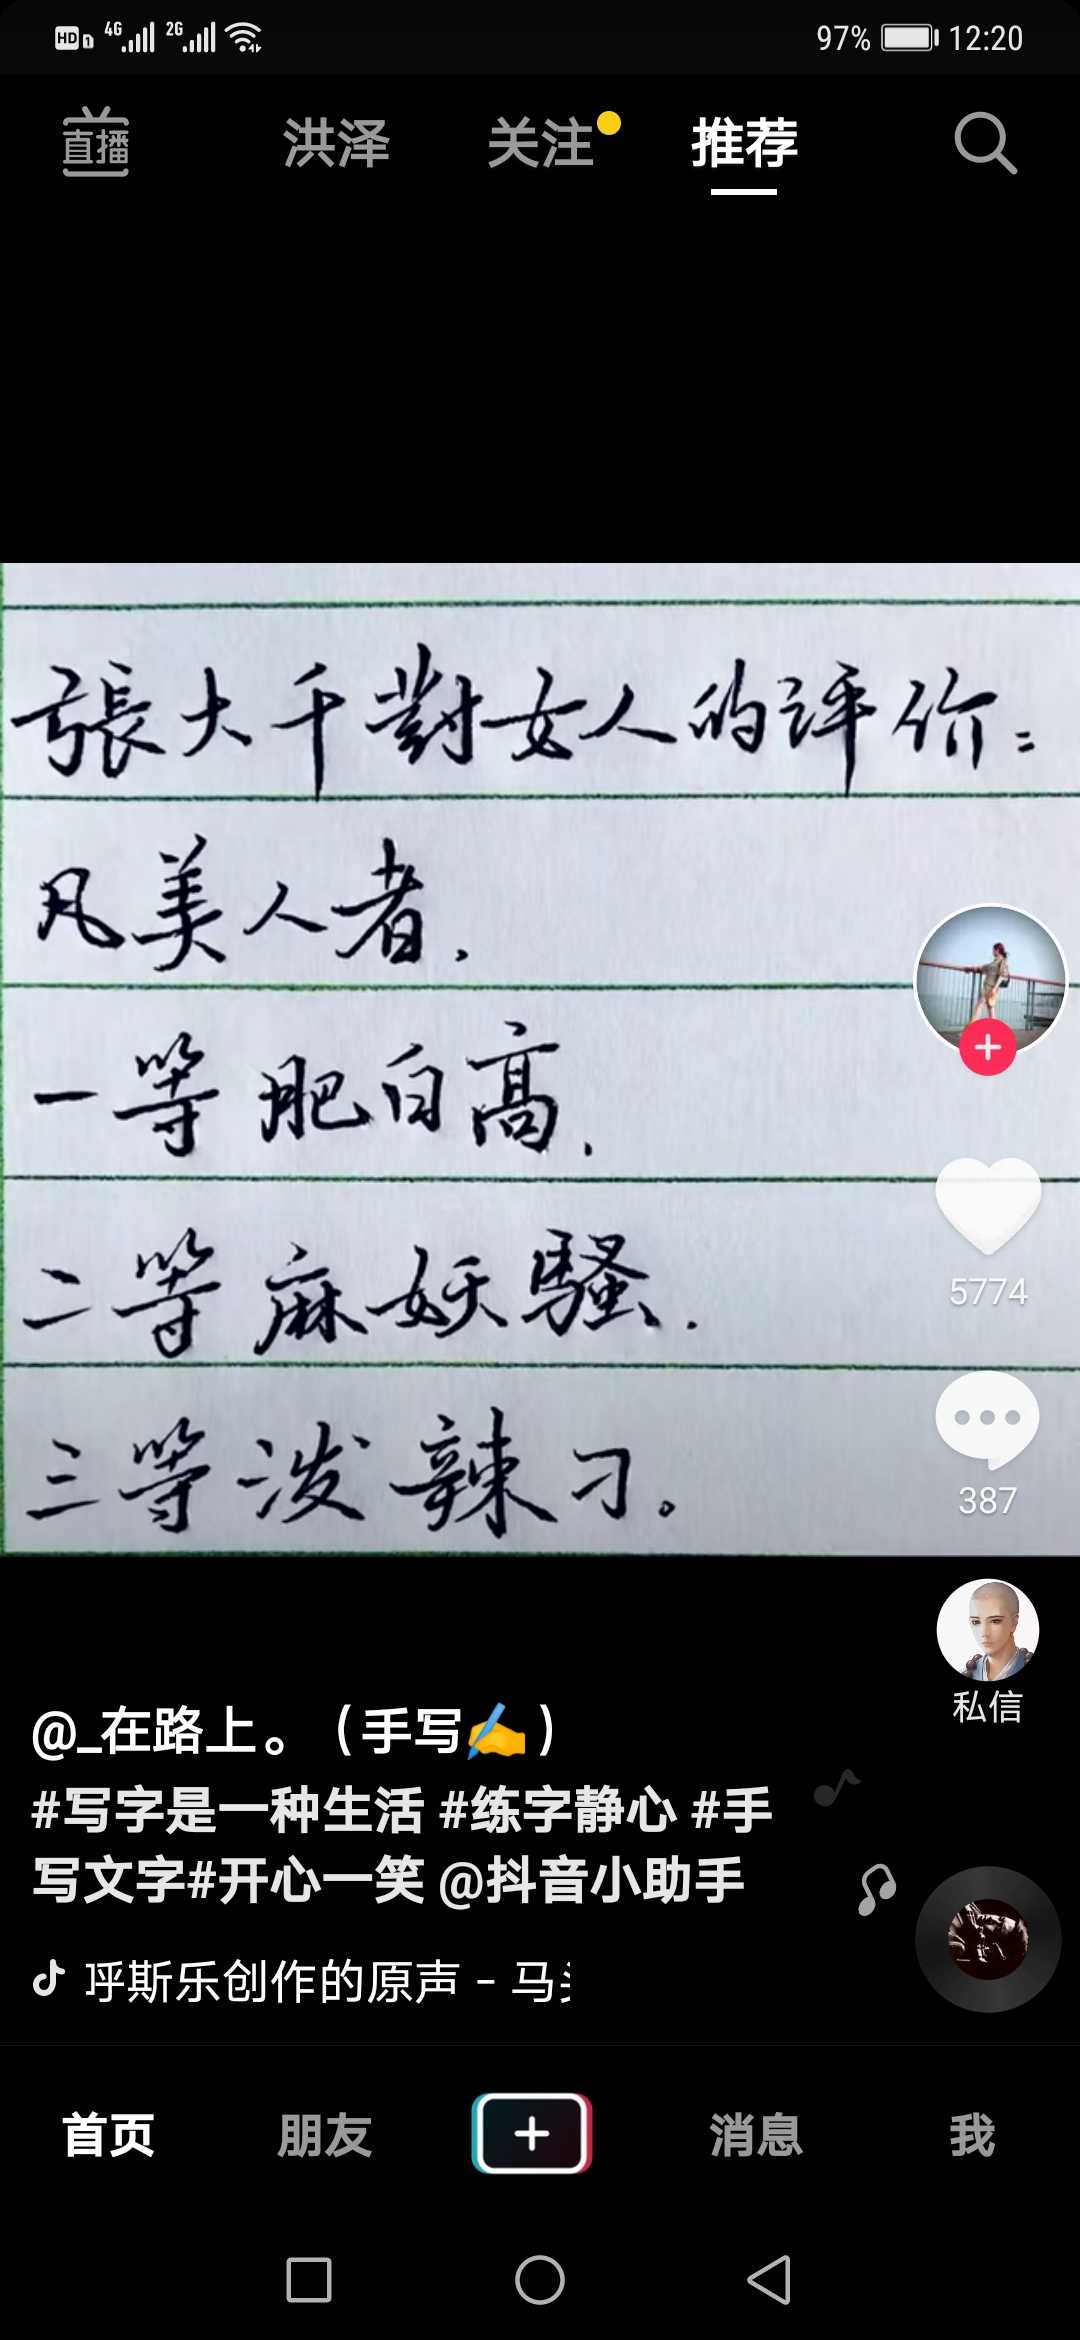 HD 1 4G 2G 97% 12:20
直播 洪泽 关注 推荐
張大千對女人的评价：
凡美人者，
一等肥白高，
二等麻妖騷，
三等泼辣刁。
5774
387
私信
@_在路上。（手写✍️）
#写字是一种生活 #练字静心 #手
写文字#开心一笑 @抖音小助手
呼斯乐创作的原声 - 马
首页 朋友 消息 我